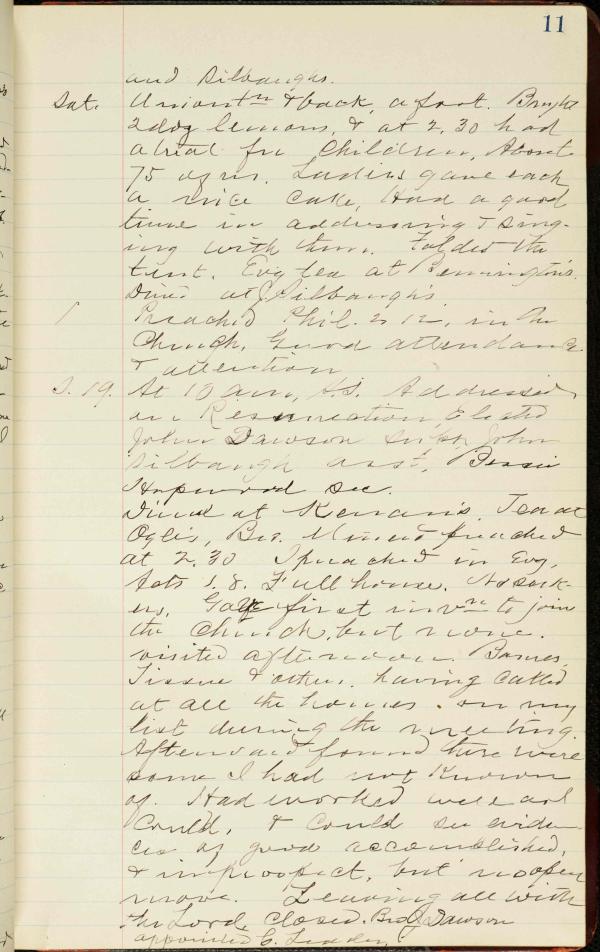 11
and Silbaughs.
Sat. Uniontn & back, afoot. Bought
2 doz lemons, & at 2.30 had
a treat for Children, About
75 of us. Ladies gave each
a nice cake, Had a good
time in addressing & sing-
ing with them. Folded the
tent. Evg tea at Bennington's.
Dined at J. Silbaugh's
Preached Phil. 2. 12, in the
Church, Good attendance
& attention
S. 19. At 10 am, S.S. Addressed
on Resurrection, Elected
John Dawson supt, John
Silbaugh asst, Bessie
Hopwood sec.
Dined at Tea at
Bro. preached
at 2.30 I preached in Evg,
Acts 1. 8. Full house. No seek-
ers. Gave first invn to join
the Church, but none.
visited afternoon. Barnes,
Tissue & others. having called
at all the homes on my
list during the meeting.
Afterward found there were
some I had not known
of. Had worked well as I
Could, & Could see eviden-
ces of good accomplished,
& in prospect, but no open
move. Leaving all with
the Lord, Closed. Bro J Dawson
appointed C. Leader.